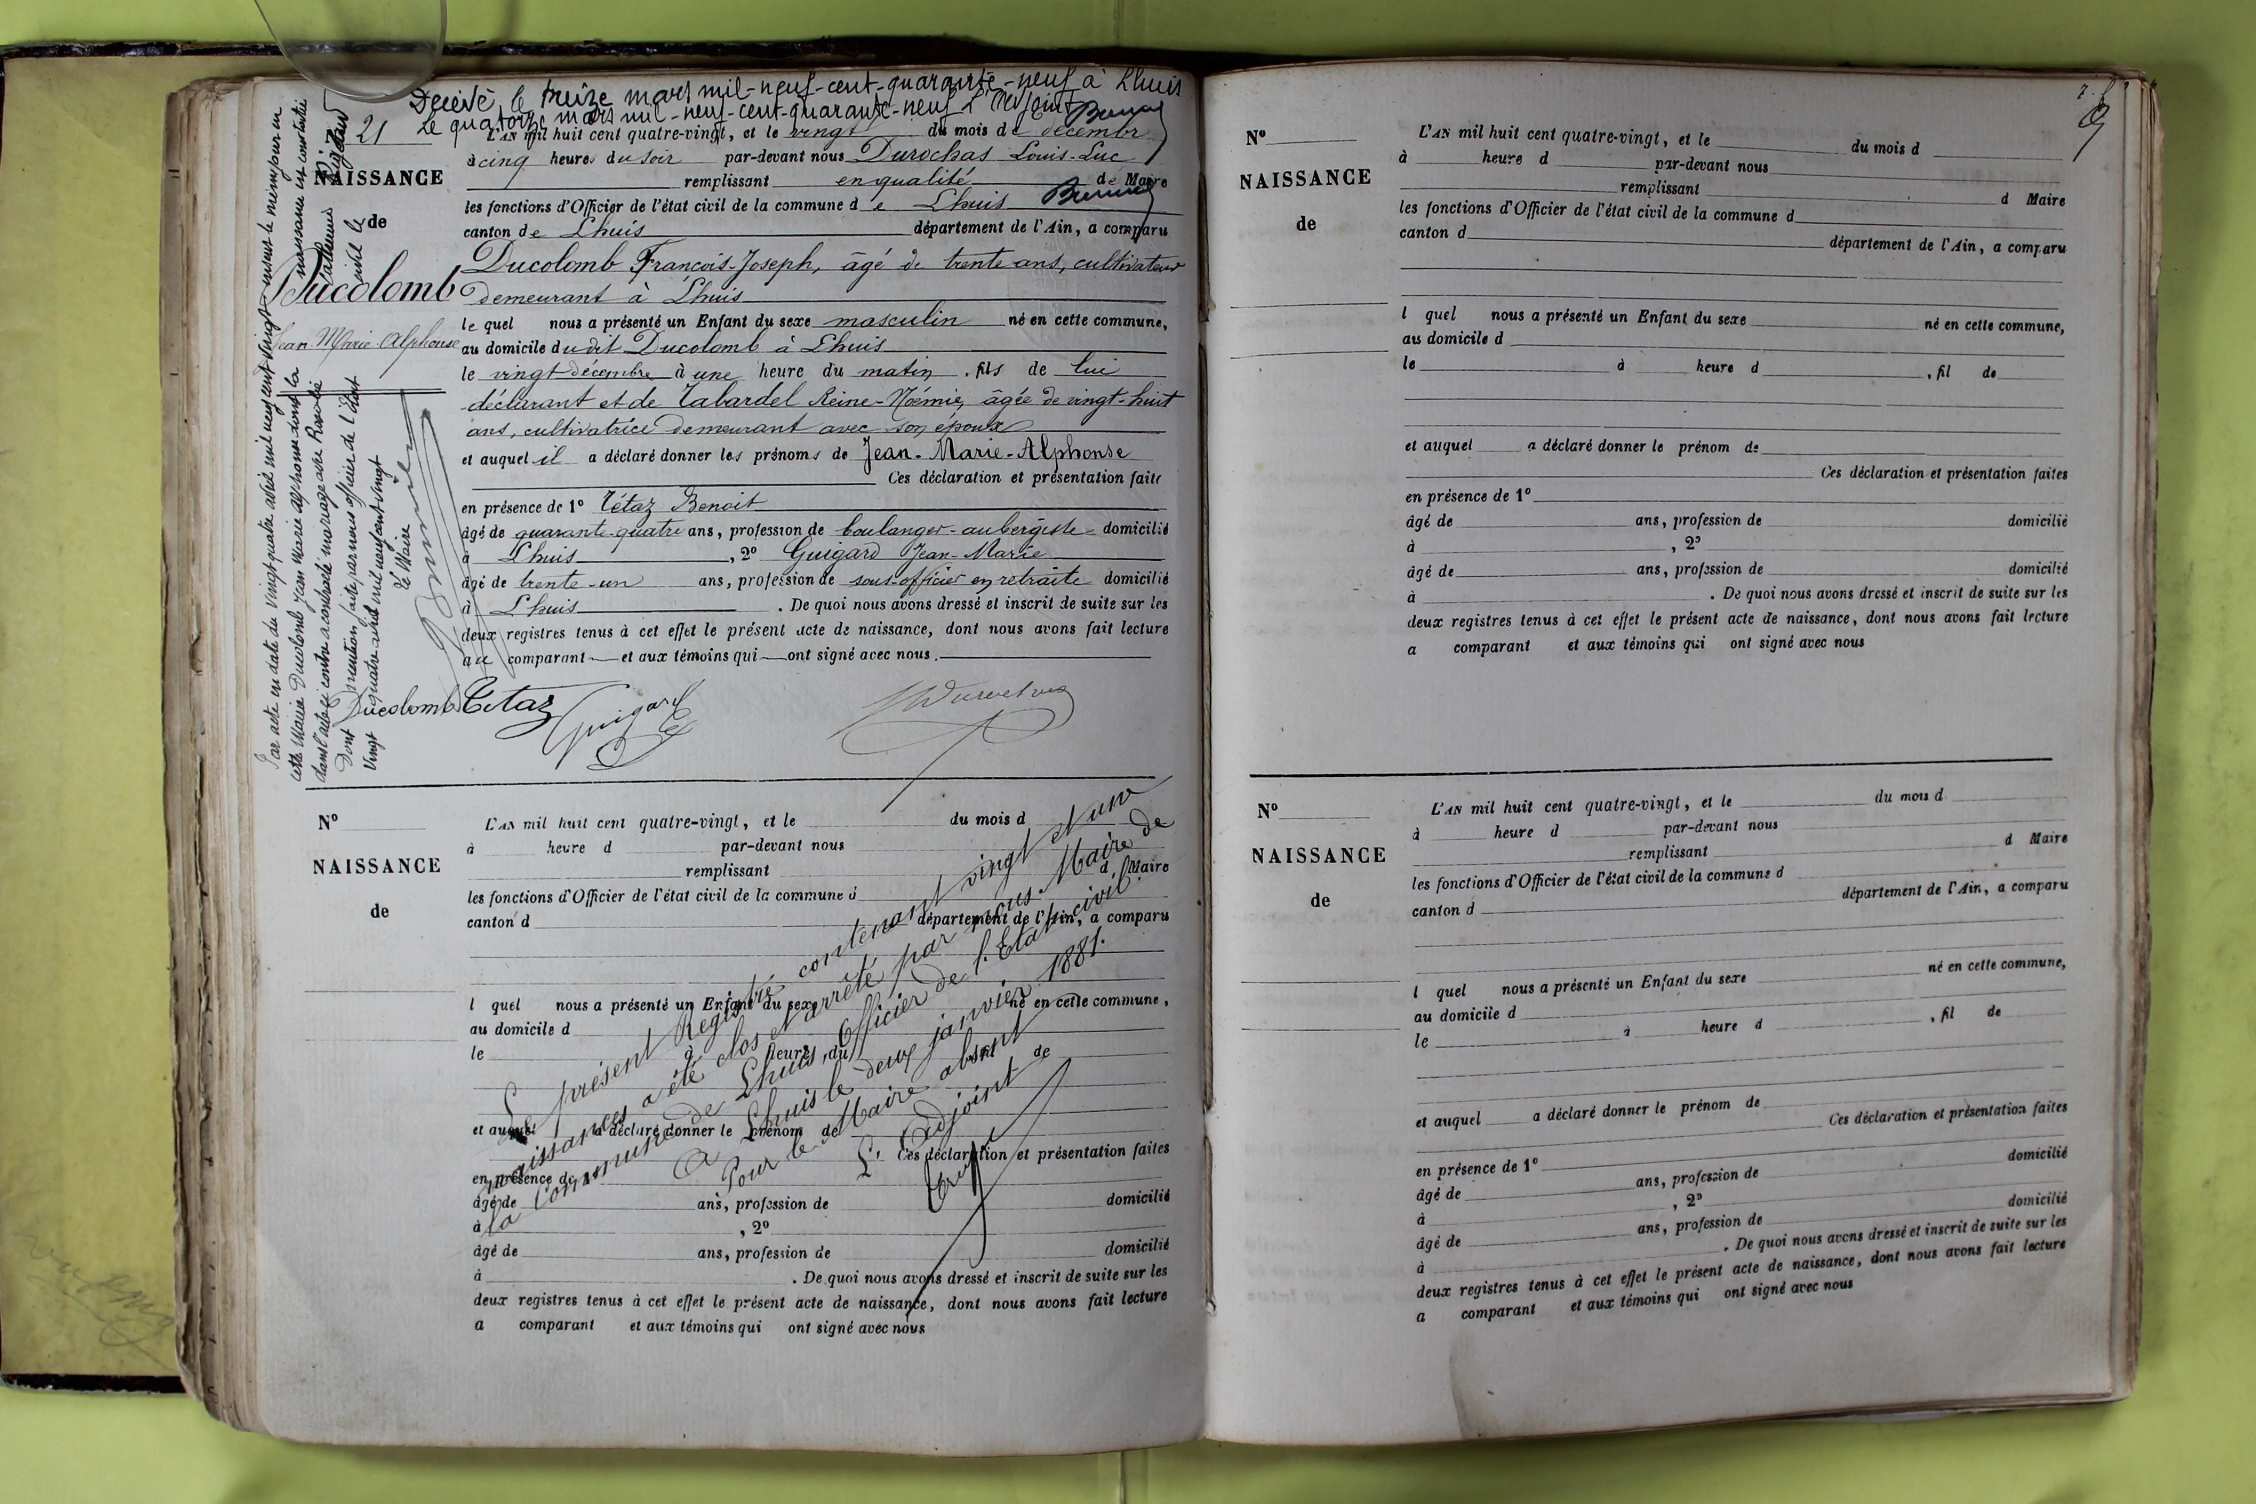 Décédé le treize mars mil-neuf-cent-quarante-neuf à Lhuis
Le quatorze mars mil-neuf-cent-quarante-neuf L'Adjoint
21
NAISSANCE
de
Ducolomb
Jean Marie Alphonse
L'AN mil huit cent quatre-vingt, et le vingt du mois de décembre
à cinq heures du soir par-devant nous Durochas Louis-Luc
remplissant en qualité de Maire
les fonctions d'Officier de l'état civil de la commune de Lhuis
canton de Lhuis département de l'Ain, a comparu
Ducolomb François-Joseph, âgé de trente ans, cultivateur
demeurant à Lhuis
lequel nous a présenté un Enfant du sexe masculin né en cette commune,
au domicile dudit Ducolomb à Lhuis
le vingt décembre à une heure du matin, fils de lui
déclarant et de Tabardel Reine-Noémie, âgée de vingt-huit
ans, cultivatrice demeurant avec son époux
et auquel il a déclaré donner les prénoms de Jean-Marie-Alphonse
Ces déclaration et présentation faites
en présence de 1º Tétaz Benoit
âgé de quarante-quatre ans, profession de boulanger-aubergiste domicilié
à Lhuis, 2º Guigard Jean-Marie
âgé de trente-un ans, profession de sous-officier en retraite domicilié
à Lhuis. De quoi nous avons dressé et inscrit de suite sur les
deux registres tenus à cet effet le présent acte de naissance, dont nous avons fait lecture
au comparant et aux témoins qui ont signé avec nous.
Ducolomb Tetaz Guigard
Par acte en date du vingt quatre avril mil neuf cent vingt
cette Mairie Ducolomb Jean Marie Alphonse dont la naissance est constatée
dans l'acte ci contre a contracté mariage avec
Dont mention faite par nous officier de l'Etat civil le
Vingt quatre avril mil neuf cent vingt
Le Maire
Nº
NAISSANCE
de
L'AN mil huit cent quatre-vingt, et le du mois d
à heure d par-devant nous
remplissant d Maire
les fonctions d'Officier de l'état civil de la commune d
canton d département de l'Ain, a comparu
l quel nous a présenté un Enfant du sexe né en cette commune,
au domicile d
le à heure du fil de
et auquel a déclaré donner le prénom de
Ces déclaration et présentation faites
en présence de
âgé de ans, profession de domicilié
à , 2º
âgé de ans, profession de domicilié
à . De quoi nous avons dressé et inscrit de suite sur les
deux registres tenus à cet effet le présent acte de naissance, dont nous avons fait lecture
a comparant et aux témoins qui ont signé avec nous
Le présent Registre contenant vingt et une
naissances a été clos et arrêté par nous Maire de
la commune de Lhuis, Officier de l'Etat civil.
A Lhuis le deux janvier 1881.
Pour le Maire absent
L'Adjoint
Nº
NAISSANCE
de
L'AN mil huit cent quatre-vingt, et le du mois d
à heure d par-devant nous
remplissant d Maire
les fonctions d'Officier de l'état civil de la commune d
canton d département de l'Ain, a comparu
l quel nous a présenté un Enfant du sexe né en cette commune,
au domicile d
le à heure d , fil de
et auquel a déclaré donner le prénom de
Ces déclaration et présentation faites
en présence de 1º
âgé de ans, profession de domicilié
à , 2º
âgé de ans, profession de domicilié
à . De quoi nous avons dressé et inscrit de suite sur les
deux registres tenus à cet effet le présent acte de naissance, dont nous avons fait lecture
a comparant et aux témoins qui ont signé avec nous
Nº
NAISSANCE
de
L'AN mil huit cent quatre-vingt, et le du mois d
à heure d par-devant nous
remplissant d Maire
les fonctions d'Officier de l'état civil de la commune d
canton d département de l'Ain, a comparu
l quel nous a présenté un Enfant du sexe né en cette commune,
au domicile d
le à heure d , fil de
et auquel a déclaré donner le prénom de
Ces déclaration et présentation faites
en présence de 1º
âgé de ans, profession de domicilié
à , 2º
âgé de ans, profession de domicilié
à . De quoi nous avons dressé et inscrit de suite sur les
deux registres tenus à cet effet le présent acte de naissance, dont nous avons fait lecture
a comparant et aux témoins qui ont signé avec nous